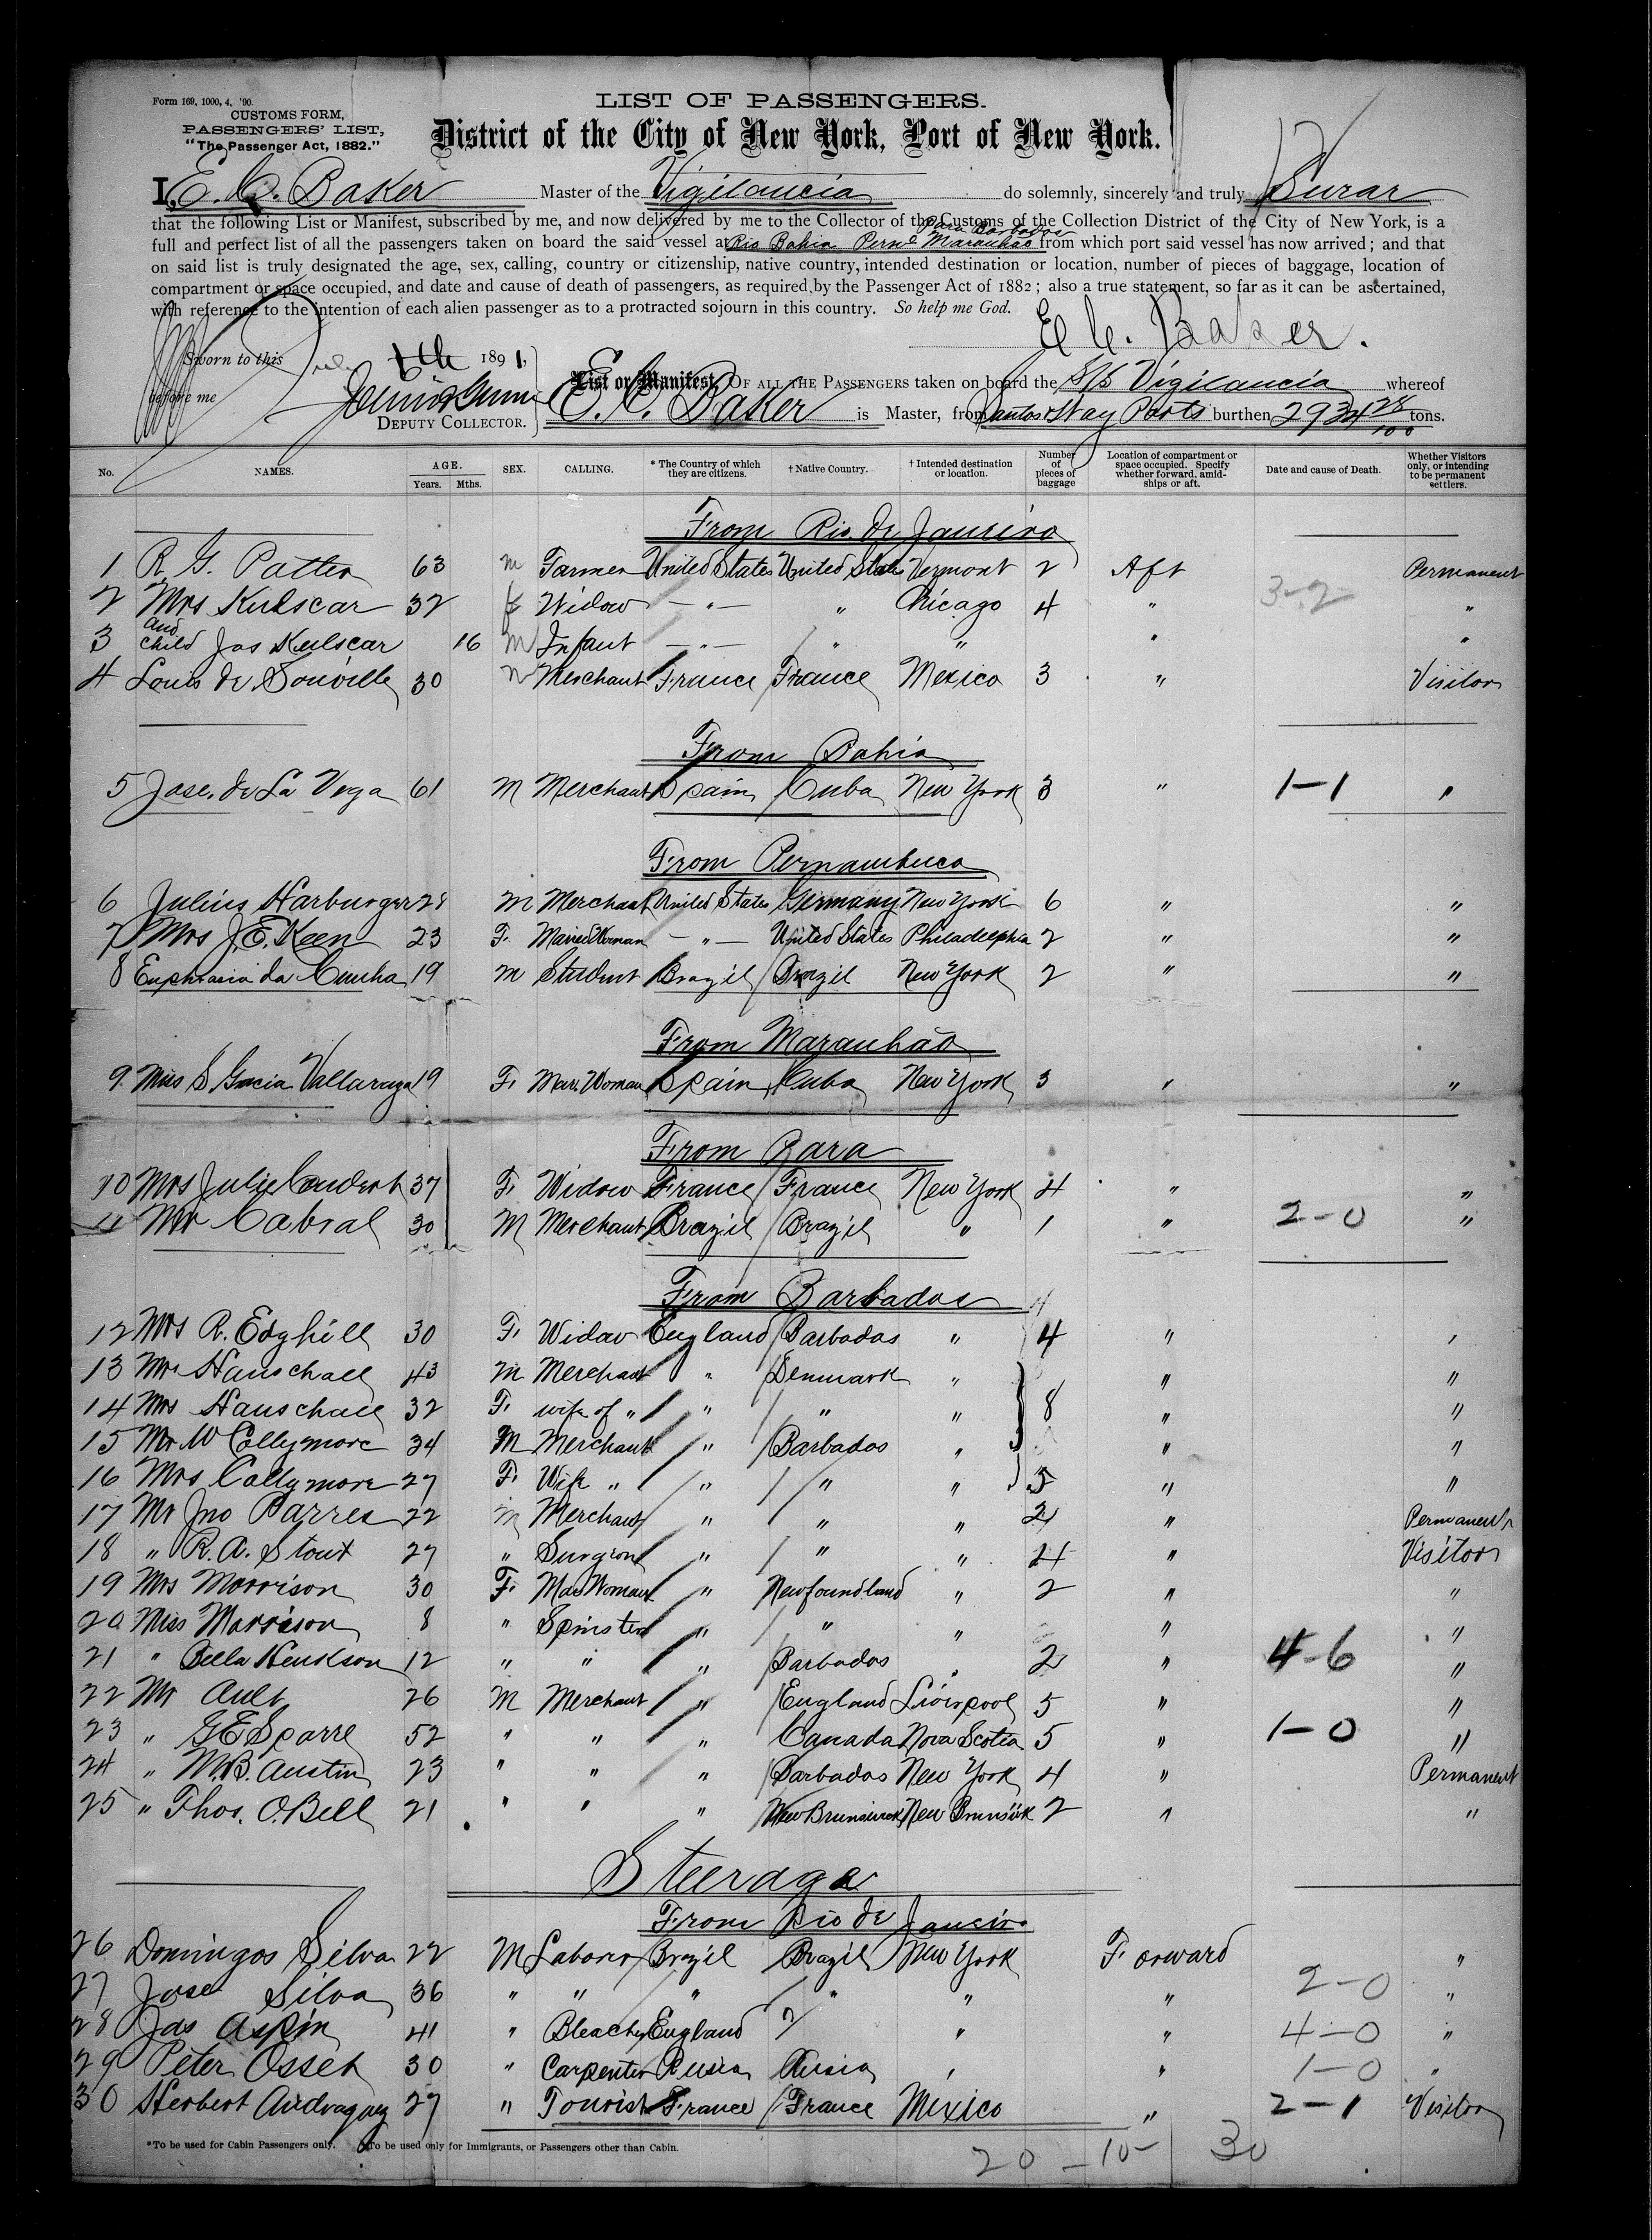 Form 169, 1000, 4, '90.
CUSTOMS FORM,
PASSENGERS' LIST,
"The Passenger Act, 1882."
LIST OF PASSENGERS.
District of the City of New York, Port of New York.
I, E. C. Baker Master of the Vigilancia do solemnly, sincerely and truly Swear
that the following List or Manifest, subscribed by me, and now delivered by me to the Collector of the Customs of the Collection District of the City of New York, is a
Para Barbados
full and perfect list of all the passengers taken on board the said vessel at Rio Bahia Pernº Maranhão from which port said vessel has now arrived; and that
on said list is truly designated the age, sex, calling, country or citizenship, native country, intended destination or location, number of pieces of baggage, location of
compartment or space occupied, and date and cause of death of passengers, as required by the Passenger Act of 1882; also a true statement, so far as it can be ascertained,
with reference to the intention of each alien passenger as to a protracted sojourn in this country. So help me God.
E. C. Baker.
Sworn to this 6th 1891,
before me
DEPUTY COLLECTOR.
List or Manifest, OF ALL THE PASSENGERS taken on board the S/S Vigilancia whereof
E. C. Baker is Master, from Santos & Way Ports burthen 2934 28/100 tons.
No. NAMES. AGE. Years. Mths. SEX. CALLING. * The Country of which they are citizens. † Native Country. † Intended destination or location. Number of pieces of baggage Location of compartment or space occupied. Specify whether forward, amidships or aft. Date and cause of Death. Whether Visitors only, or intending to be permanent settlers.
From Rio de Janeiro
1 R. G. Patten 63 M Farmer United States United States Vermont 2 Aft Permanent
2 Mrs Kulscar 32 f Widow — " — " Chicago 4 " 3-2 "
3 and child Jas Kulscar 16 M Infant — " — " " " "
4 Louis de Souville 30 M Merchant France France Mexico 3 " Visitor
From Bahia
5 Jose de La Vega 61 M Merchant Spain Cuba New York 3 " 1-1 "
From Pernambuco
6 Julius Harburger 28 M Merchant United States Germany New York 6 " "
7 Mrs J. E. Keen 23 F. Married Woman — " — United States Philadelphia 2 " "
8 Euphrasia da Cunha 19 M Student Brazil Brazil New York 2 " "
From Maranhão
9. S Gracia 19 F. Mar. Woman Spain Cuba New York 3 " "
From Para
10 Mrs Julie 37 F. Widow France France New York 4 " "
11 Mr Cabral 30 M Merchant Brazil Brazil " 1 " 2-0 "
From Barbados
12 Mrs R. Edghill 30 F. Widow England Barbados " 4 " "
13 Mr Hanschall 43 M Merchant " Denmark " " "
14 Mrs Hanschall 32 F. wife of " " " " 8 " "
15 Mr W Collymore 34 M Merchant " Barbados " " "
16 Mrs Collymore 27 F. Wife " " " " 5 " "
17 Mr Jno Parres 22 M Merchant " " " 2 " Permanent
18 " R. A. Stout 27 " Surgeon " " " 4 " Visitor
19 Mrs Morrison 30 F. Mar Woman " Newfoundland " 2 " "
20 Miss Morrison 8 " Spinster " " " " "
21 " Bella 12 " " " Barbados " 2 " 4-6 "
22 Mr Ault 26 M Merchant " England Liverpool 5 " "
23 " G E Sparre 52 " " " Canada Nova Scotia 5 " 1-0 "
24 " W. B. Austin 23 " " " Barbados New York 4 " Permanent
25 " Thos. O. Bell 21 " " " New Brunswick New Brunswick 2 " "
Steerage
From Rio de Janeiro
26 Domingos Silva 22 M Laborer Brazil Brazil New York Forward "
27 Jose Silva 36 " " " " " " 2-0 "
28 Jas Aspin 41 " England " " " 4-0 "
29 Peter Osset 30 " Carpenter Russia Russia " " 1-0 "
30 Herbert 27 " Tourist France France Mexico " 2-1 Visitor
*To be used for Cabin Passengers only. †To be used only for Immigrants, or Passengers other than Cabin.
20 - 10 - 30